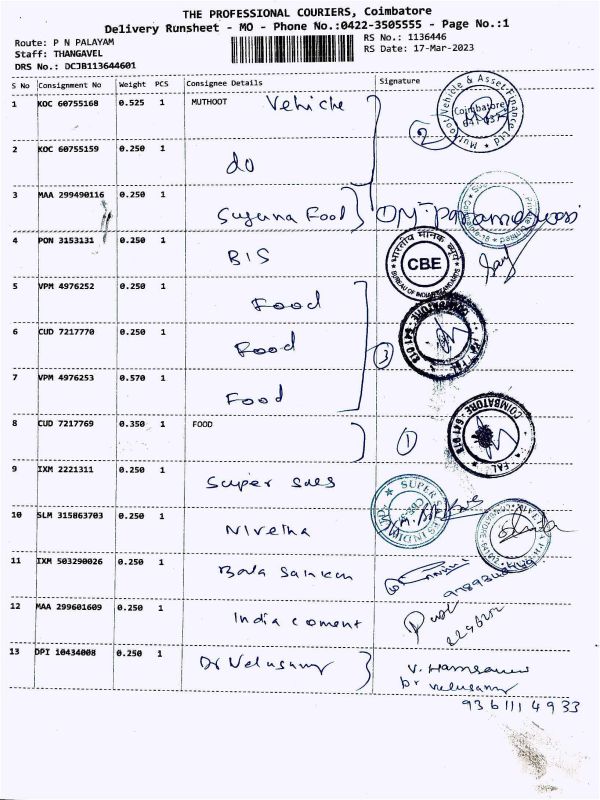 THE PROFESSIONAL COURIERS, Coimbatore
Delivery Runsheet - MO - Phone No.:0422-3505555 - Page No.:1
Route: P N PALAYAM
RS No.: 1136446
Staff: THANGAVEL
RS Date: 17-Mar-2023
DRS No.: DCJB113644601
S No Consignment No Weight PCS Consignee Details Signature
1 KOC 60755168 0.525 1 MUTHOOT Vehicle
2
2 KOC 60755159 0.250 1 do
3 MAA 299490116 0.250 1 Suguna Food
4 PON 3153131 0.250 1 BIS
भारतीय मानक ब्यूरो
CBE
BUREAU OF INDIAN STANDARDS
5 VPM 4976252 0.250 1 Food
6 CUD 7217770 0.250 1 Food
3
COIMBATORE - 641
7 VPM 4976253 0.570 1 Food
8 CUD 7217769 0.350 1 FOOD
1
COIMBATORE - 641 018
9 IXM 2221311 0.250 1 Super sales
10 SLM 315863703 0.250 1 Nivetha
11 IXM 503290026 0.250 1 Bala
12 MAA 299601609 0.250 1 India cement
13 DPI 10434008 0.250 1 Dr Velusamy
Dr Velusamy
9361114933